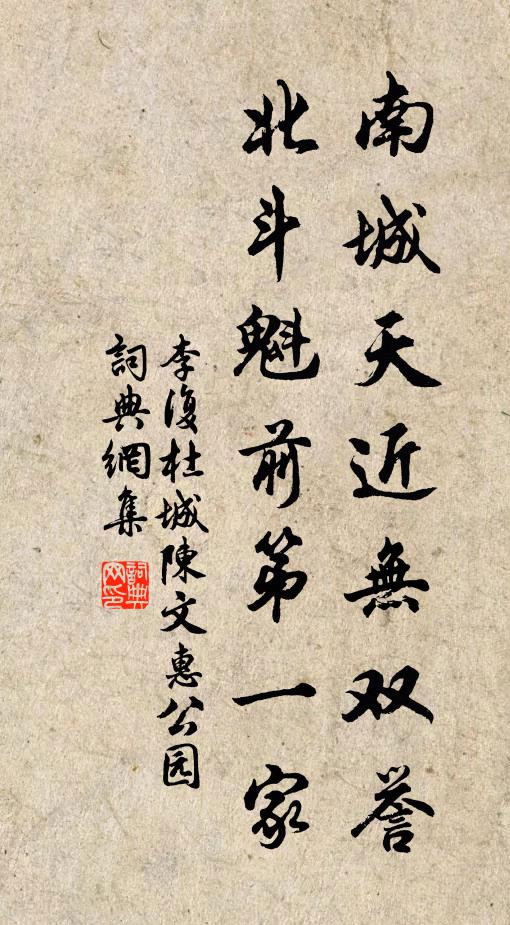 南城天近無双誉
北斗魁前第一家
李復杜城陳文惠公园
詞典網集
詞典网印